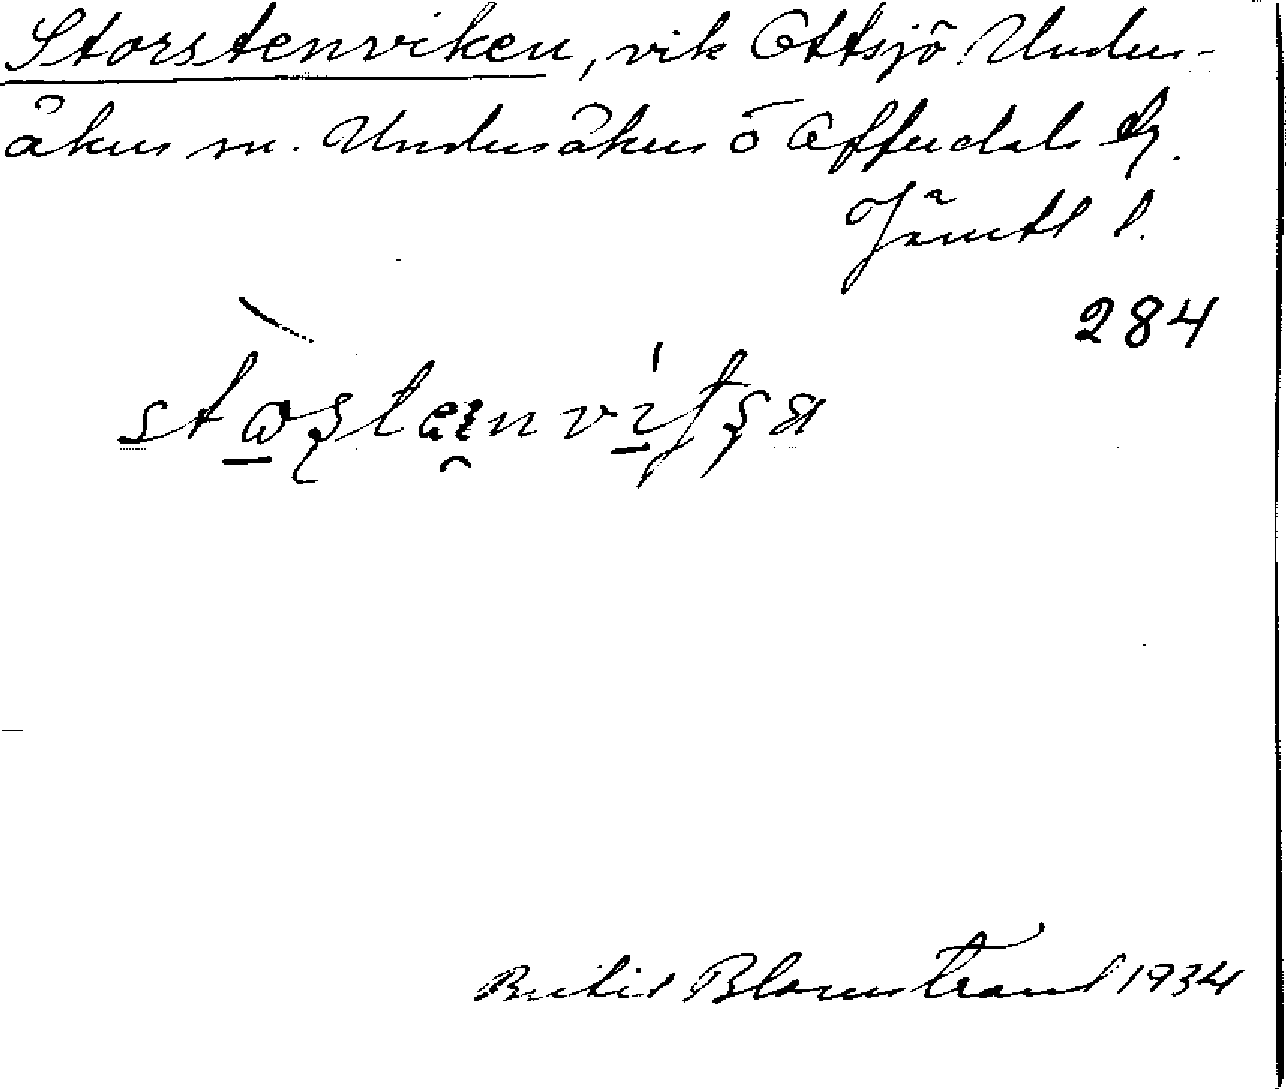 Storstenviken, vik Ottsjö Unders-
åkers sn. Undersåkers o Offerdals tg.
Jämtl l.
284
Bertil Blomstrand 1934